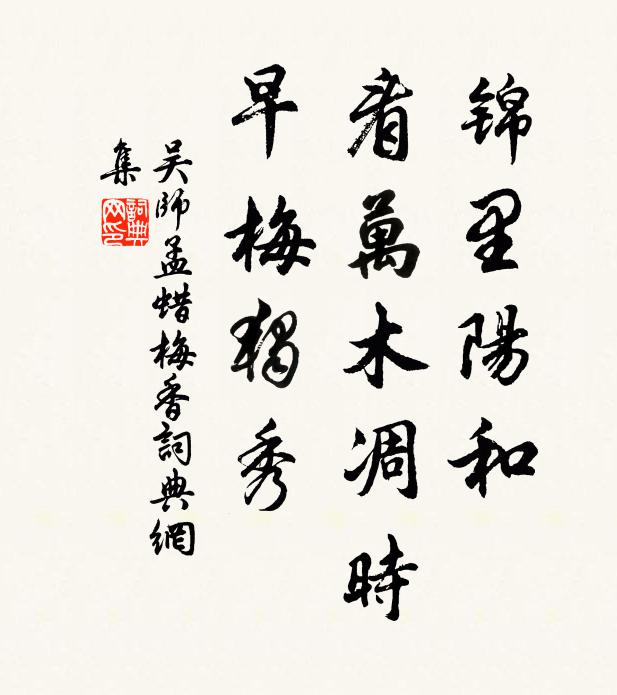 锦里陽和
看萬木凋時
早梅独秀
吴師孟蜡梅香詞典網
集
詞典
网印